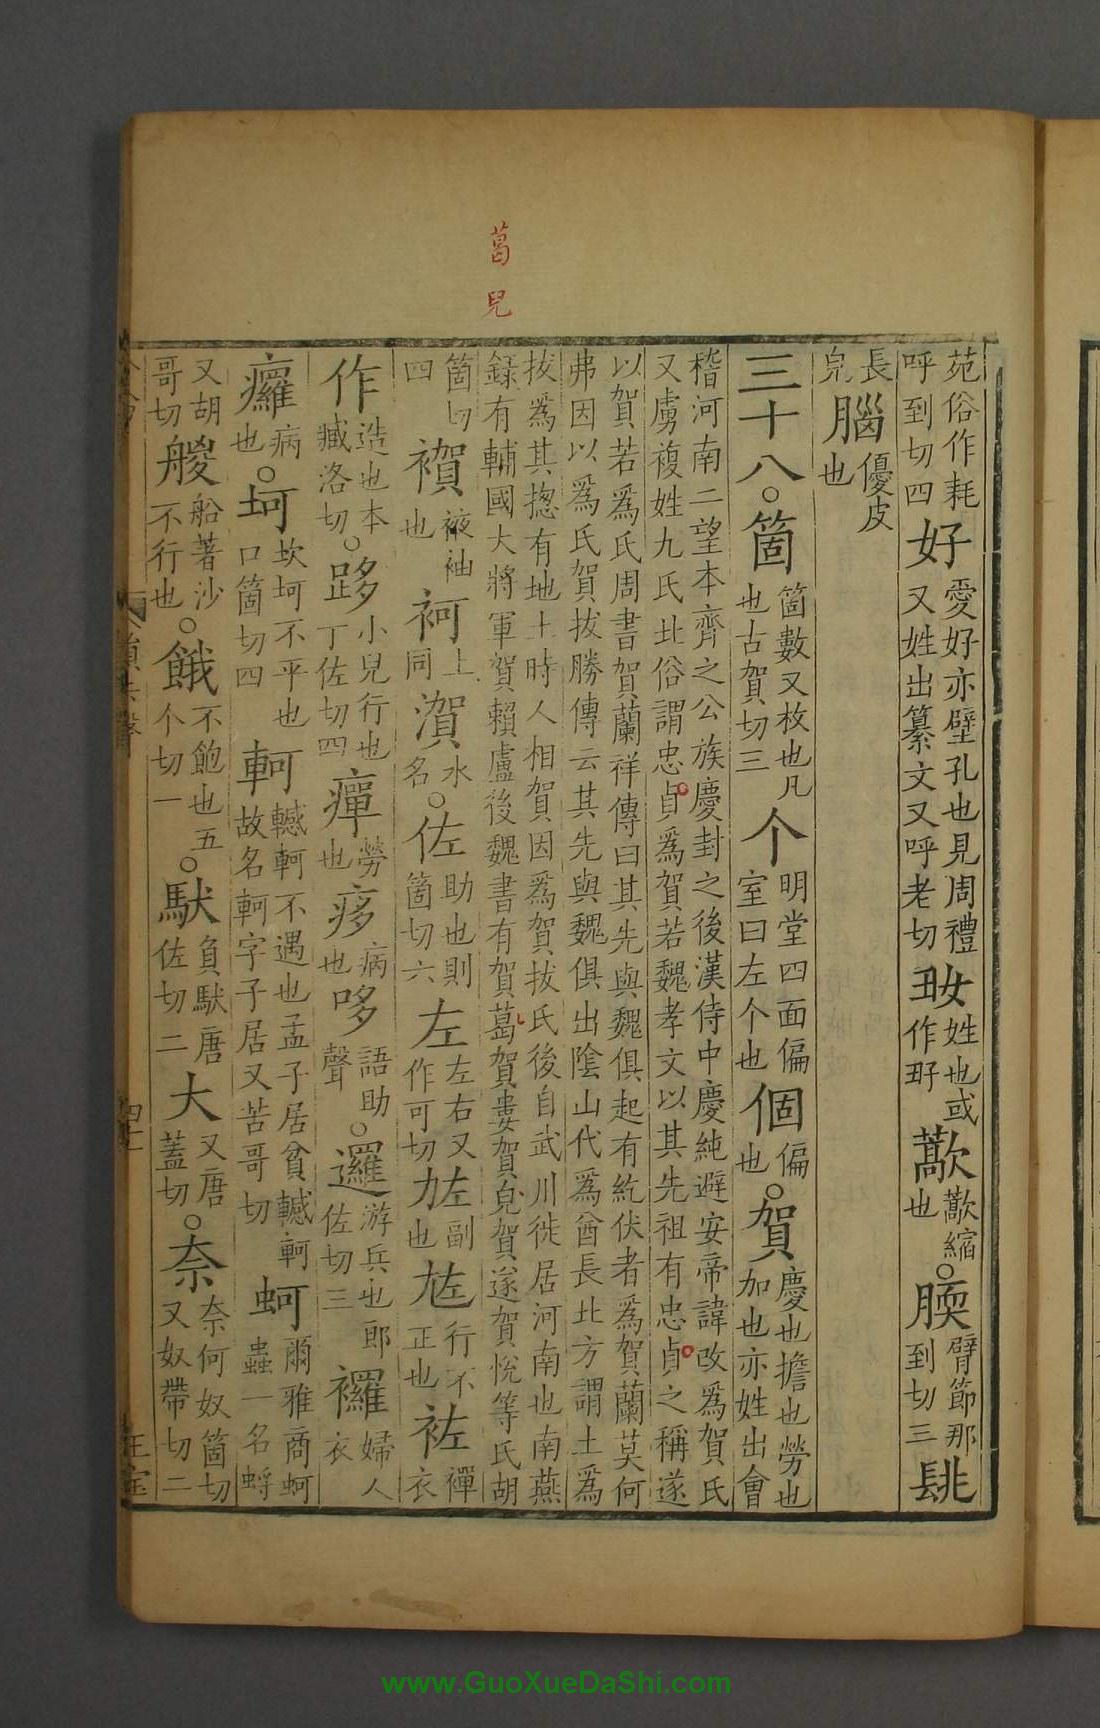 葛
兒
苑俗作耗呼到切四好愛好亦壁孔也見周禮又姓出纂文又呼老切𡚽姓也或作𡥃歊歊縮也○臑臂節那到切三䑃
長皃腦優皮也
三十八○箇箇數又枚也凡也古賀切三个明堂四面偏室曰左个也個偏也○賀慶也擔也勞也加也亦姓出會
稽河南二望本齊之公族慶封之後漢侍中慶純避安帝諱改爲賀氏
又虜複姓九氏北俗謂忠貞爲賀若魏孝文以其先祖有忠貞之稱遂
以賀若爲氏周書賀蘭祥傳曰其先與魏俱起有紇伏者爲賀蘭莫何
弗因以爲氏賀拔勝傳云其先與魏俱出陰山代爲酋長北方謂土爲
拔爲其揔有地土時人相賀因爲賀拔氏後自武川徙居河南也南燕
録有輔國大將軍賀賴盧後魏書有賀葛賀婁賀兒賀遂賀悅等氏胡
箇切四䙎袚袖也袔上同㵑水名○佐助也則箇切六左左右又作可切𠂇副也㝾行不正也袏襌衣
作造也本臧洛切○跢小兒行也丁佐切四癉勞也痑病也哆語助聲○邏游兵也郎佐切三䙨婦人衣
癳病也○坷坎坷不平也口箇切四軻轗軻不遇也孟子居貧轗軻故名軻字子居又苦哥切蚵爾雅商蚵蟲一名蜉
又胡哥切艐船著沙不行也○餓不飽也五个切一○馱負馱唐佐切二大又唐蓋切○奈奈何奴箇切又奴帶切二
王寶
www.GuoXueDaShi.com